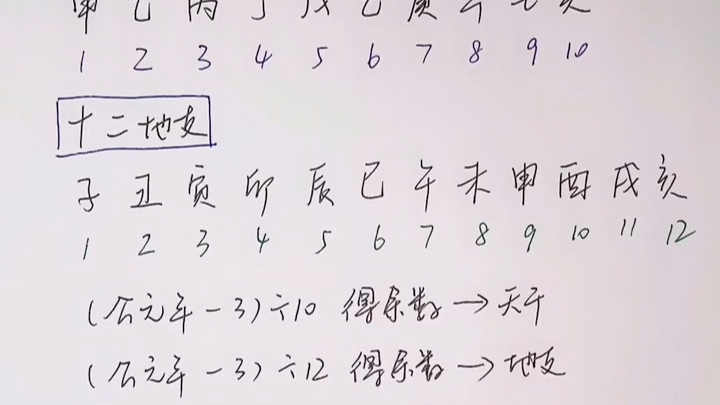 甲 乙 丙 丁 戊 己 庚 辛 壬 癸
1 2 3 4 5 6 7 8 9 10
十二地支
子 丑 寅 卯 辰 巳 午 未 申 酉 戌 亥
1 2 3 4 5 6 7 8 9 10 11 12
(公元年-3)÷10 得余数→天干
(公元年-3)÷12 得余数→地支